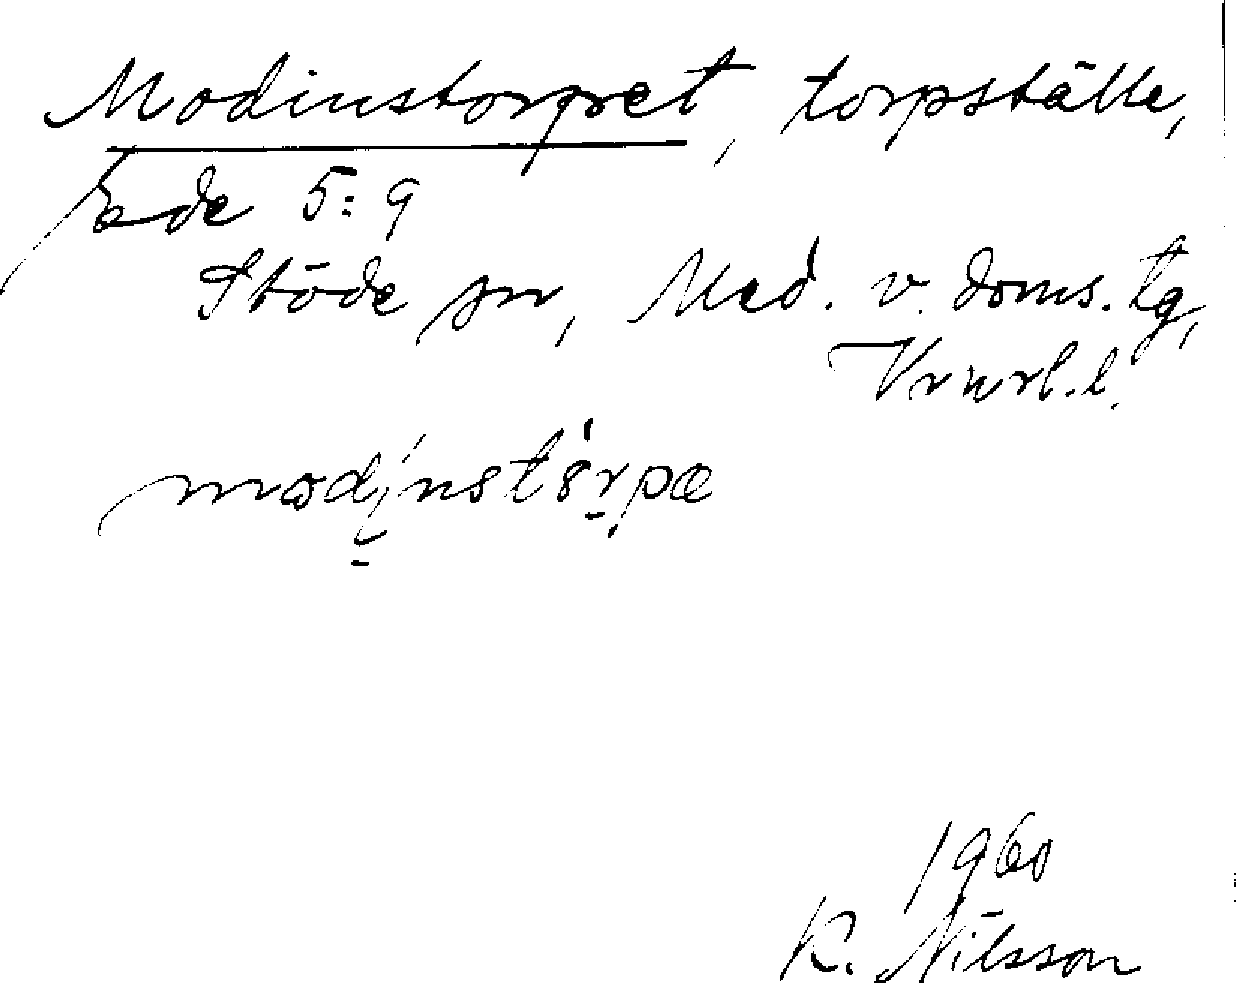 Modinstorpet, torpställe,
Ede 5:9
Stöde sn, Med. v. doms. tg,
Vrnrl. l.
modinstörpæ
1960
K. Nilsson